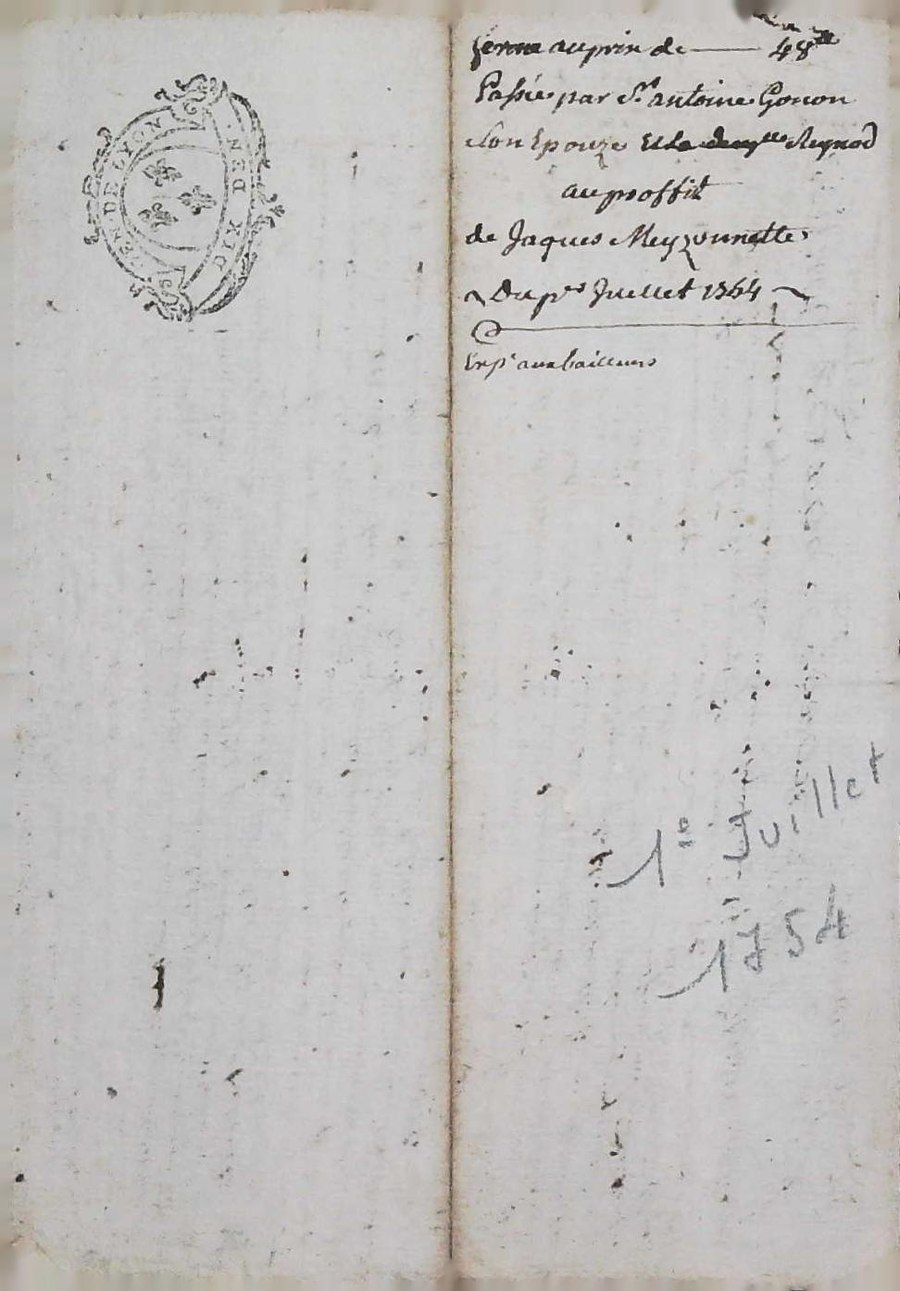 GEN. DE LYON
DIX DEN.
ferme au prix de — 48ᵗᵗ
Passée par Sʳ antoine Gonon
son Epouze Et la demˡˡᵉ Reynod
au proffit
de Jaques Meyzonnette
Du pʳ Juillet 1754
Expᵉ aux bailleurs
1º Juillet
1754